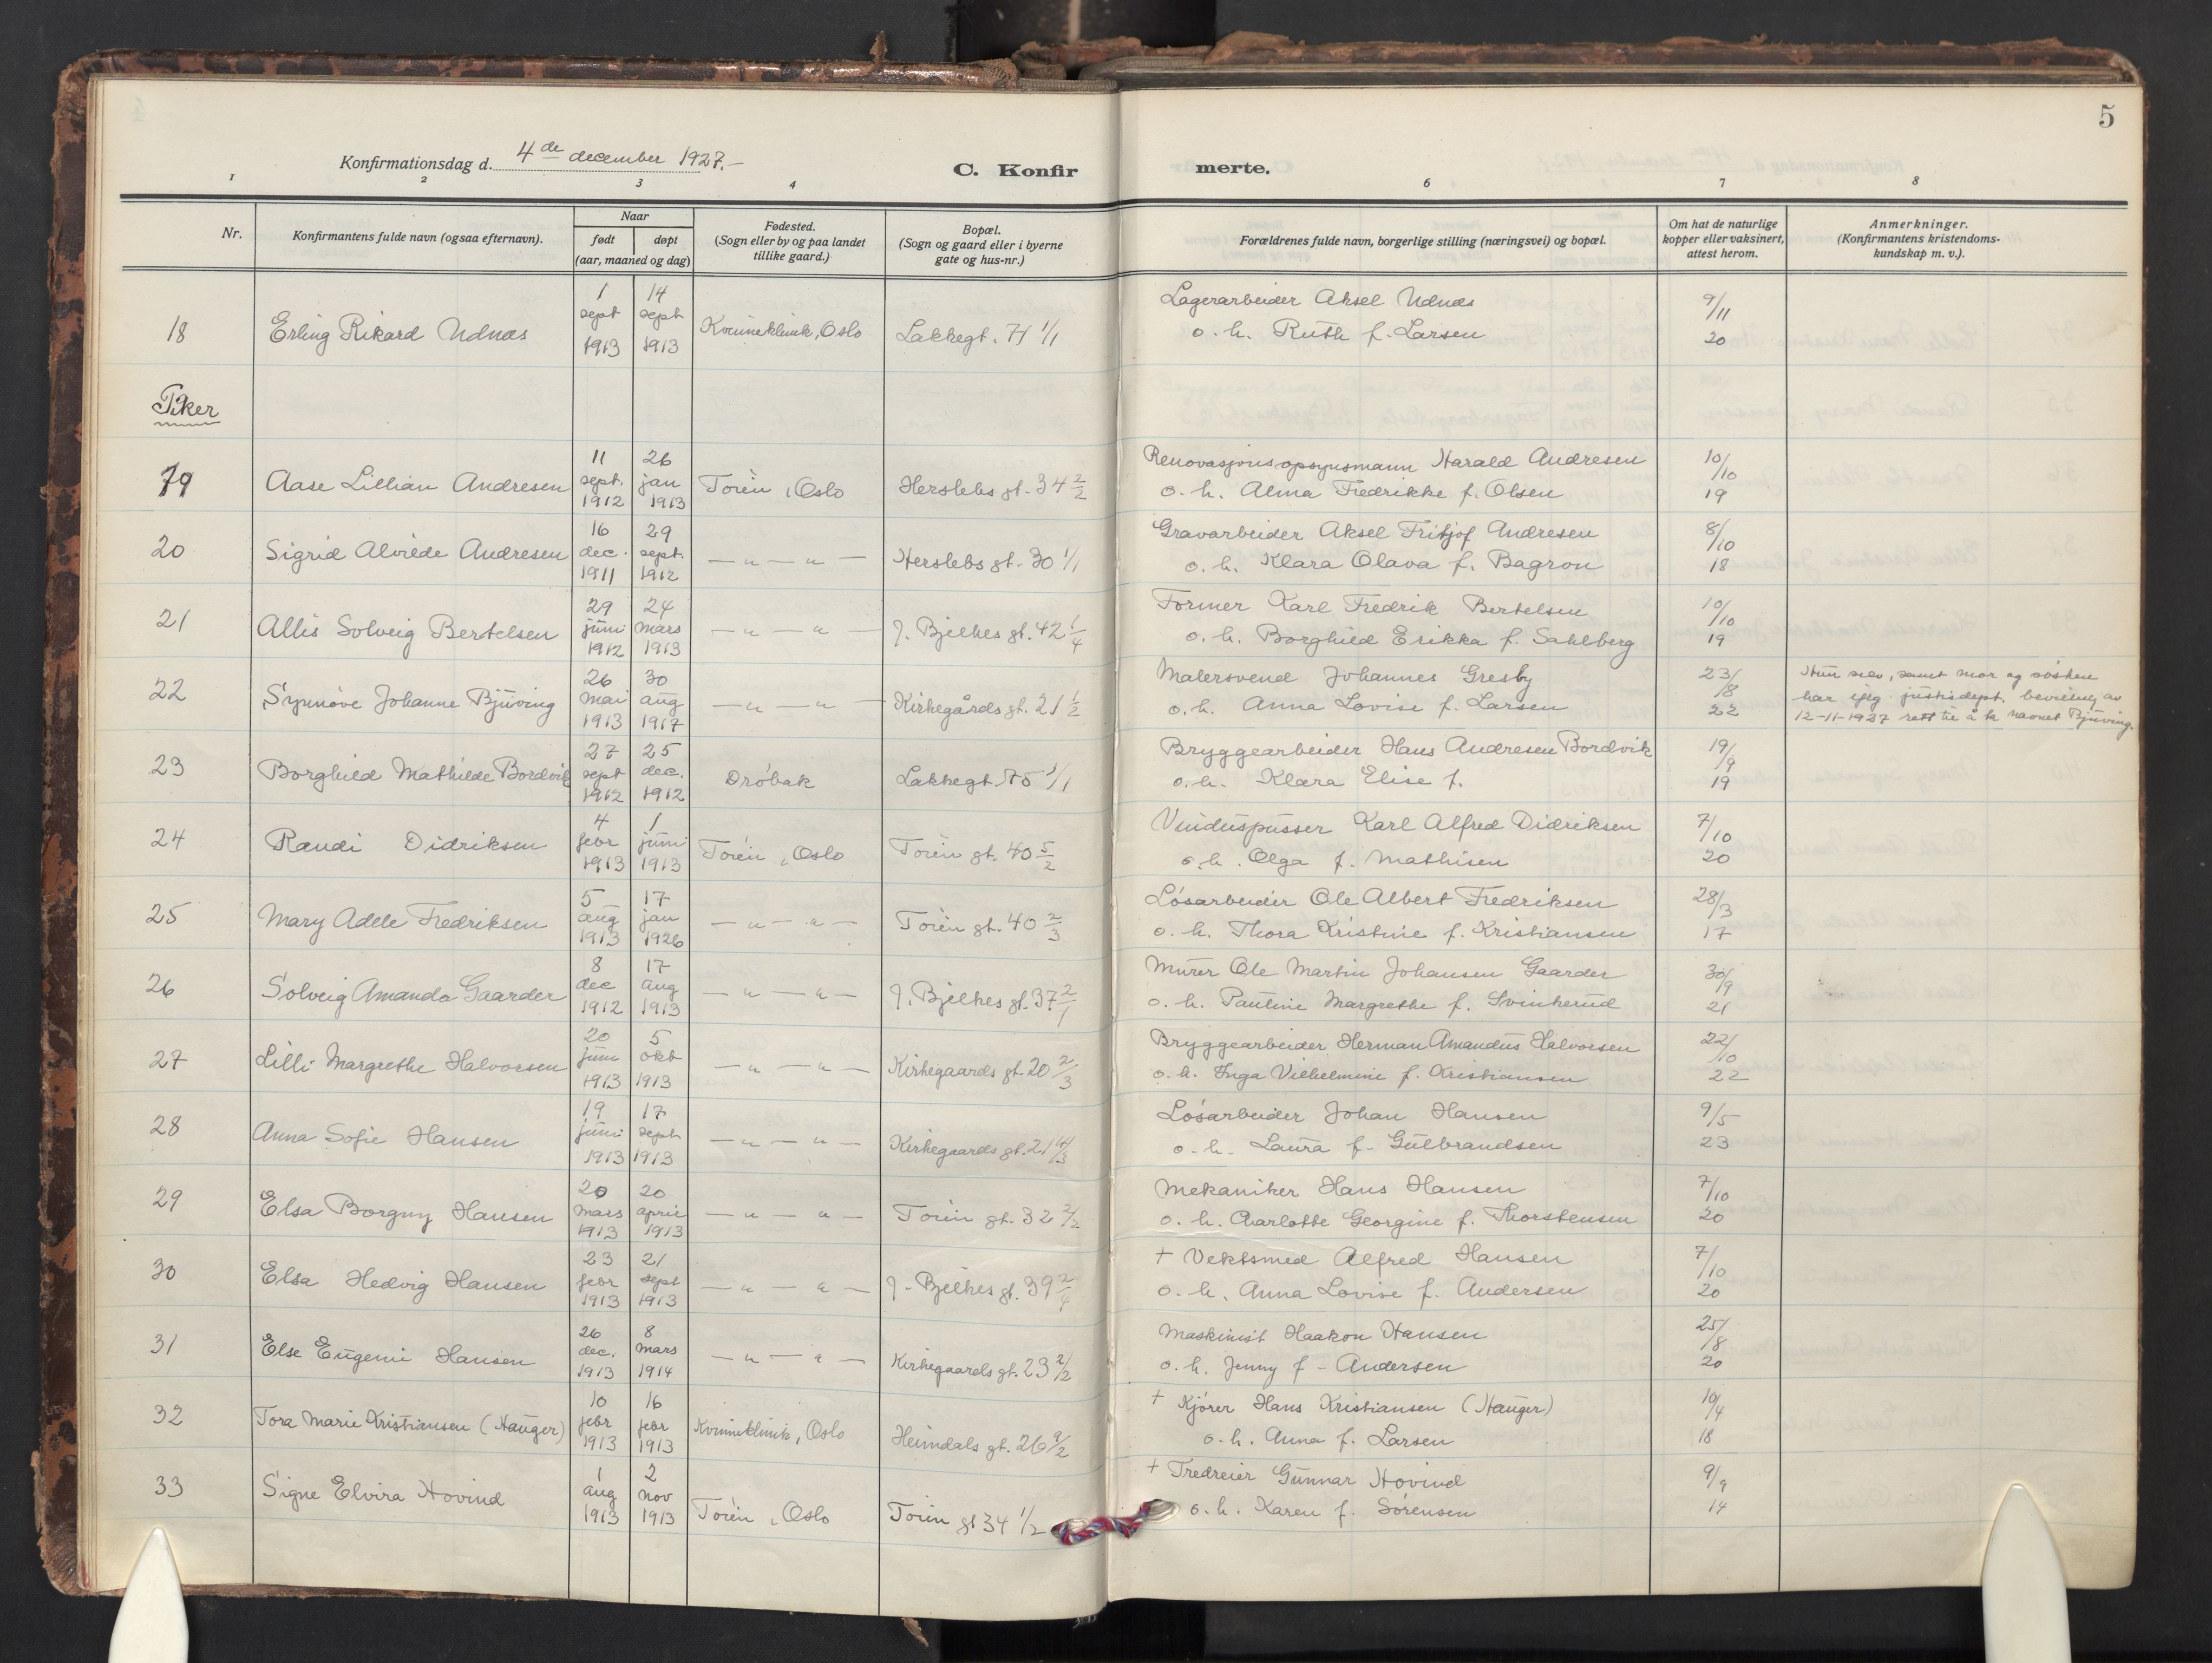 5
Konfirmationsdag d. 4de december 1927.-
C. Konfirmerte.
1 2 3 4 6 7 8
Nr.
Konfirmantens fulde navn (ogsaa efternavn).
Naar
født døpt
(aar, maaned og dag)
Fødested.
(Sogn eller by og paa landet
tillike gaard.)
Bopæl.
(Sogn og gaard eller i byerne
gate og hus-nr.)
Forældrenes fulde navn, borgerlige stilling (næringsvei) og bopæl.
Om hat de naturlige
kopper eller vaksinert,
attest herom.
Anmerkninger.
(Konfirmantens kristendoms-
kundskap m. v.).
18 Erling Rikard Udnæs 1 sept 1913 14 sept 1913 Kvinneklinik, Oslo Lakkegt. 71 1/1 Lagerarbeider Aksel Udnæs 9/11
o. h. Ruth f. Larsen 20
Piker
19 Aase Lillian Andresen 11 sept. 1912 26 jan 1913 Töien, Oslo Herslebs gt. 34 2/2 Renovasjonsopsynsmann Harald Andresen 10/10
o. h. Alma Fredrikke f. Olsen 19
20 Sigrid Alvilde Andresen 16 dec. 1911 29 sept. 1912 — " — " — Herslebs gt. 30 1/1 Gravarbeider Aksel Fritjof Andresen 8/10
o. h. Klara Olava f. Bagron 18
21 Allis Solveig Bertelsen 29 juni 1912 24 mars 1913 — " — " — J. Bjelkes gt. 42 1/4 Former Karl Fredrik Bertelsen 10/10
o. h. Borghild Erikka f. Sahlberg 19
22 Synnöve Johanne Bjuving 26 mai 1913 30 aug 1917 — " — " — Kirkegårds gt. 21 1/2 Malersvend Johannes Gresby 23/8
o. h. Anna Lovise f. Larsen 22
Hun selv, samt mor og søsken
har ifølg justisdept. bevilling av
12-11-1927 rett til å ta navnet Bjuving.
23 Borghild Mathilde Bordvik 27 sept 1912 25 dec. 1912 Dröbak Lakkegt. 75 1/1 Bryggearbeider Hans Andresen Bordvik 19/9
o. h. Klara Elise f. 19
24 Randi Didriksen 4 febr 1913 1 juni 1913 Töien, Oslo Töien gt. 40 5/2 Vinduspusser Karl Alfred Didriksen 7/10
o. h. Olga f. Mathisen 20
25 Mary Adele Fredriksen 5 aug 1913 17 jan 1926 — " — " — Töien gt. 40 2/3 Lösarbeider Ole Albert Fredriksen 28/3
o. h. Thora Kristine f. Kristiansen 17
26 Solveig Amanda Gaarder 8 dec 1912 17 aug 1913 — " — " — J. Bjelkes gt. 37 2/1 Murer Ole Martin Johansen Gaarder 30/9
o. h. Pauline Margrethe f. Svinkerud 21
27 Lilli Margrethe Halvorsen 20 juni 1913 5 okt 1913 — " — " — Kirkegaards gt. 20 2/3 Bryggearbeider Herman Amandus Halvorsen 22/10
o. h. Inga Vilhelmine f. Kristiansen 22
28 Anna Sofie Hansen 19 juni 1913 17 sept 1913 — " — " — Kirkegaards gt. 21 4/3 Lösarbeider Johan Hansen 9/5
o. h. Laura f. Gulbrandsen 23
29 Elsa Borgny Hansen 20 mars 1913 20 april 1913 — " — " — Töien gt. 32 2/2 Mekaniker Hans Hansen 7/10
o. h. Charlotte Georgine f. Thorstensen 20
30 Elsa Hedvig Hansen 23 febr 1913 21 sept 1913 — " — " — J. Bjelkes gt. 39 2/4 + Vektsmed Alfred Hansen 7/10
o. h. Anna Lovise f. Andersen 20
31 Else Eugenie Hansen 26 dec. 1913 8 mars 1914 — " — " — Kirkegaards gt. 23 2/2 Maskinist Haakon Hansen 25/8
o. h. Jenny f. Andersen 20
32 Tora Marie Kristiansen (Hauger) 10 febr 1913 16 febr 1913 Kvinneklinik, Oslo Heimdals gt. 26 9/2 + Kjörer Hans Kristiansen (Hauger) 10/4
o. h. Anna f. Larsen 18
33 Signe Elvira Hovind 1 aug 1913 2 nov 1913 Töien, Oslo Töien gt 34 1/2 + Tredreier Gunnar Hovind 9/9
o. h. Karen f. Sörensen 14